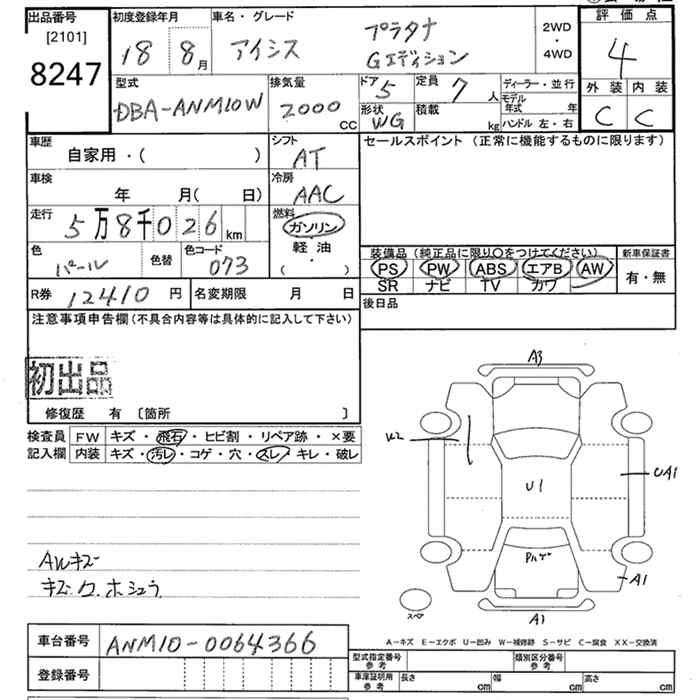 出品番号
[2101]
8247
初度登録年月
18 8月
車名・グレード
アイシス プラタナ
Gエディション
2WD
・
4WD
評価点
4
外装 内装
C C
型式
DBA-ANM10W
排気量
2000
CC
ドア 5
定員 7人
ディーラー・並行
モデル年式 年
形状 WG
積載 kg
ハンドル 左・右
車歴
自家用・( )
シフト
AT
セールスポイント (正常に機能するものに限ります)
車検
年 月( 日)
冷房
AAC
走行
5万8千026km
燃料
ガソリン
軽油
( ・ )
色
パール
色替
色コード
073
装備品(純正品に限り○をつけてください)
PS PW ABS エアB AW
SR ナビ TV カワ
新車保証書
有・無
R券 12410円
名変期限 月 日
後日品
注意事項申告欄(不具合内容等は具体的に記入して下さい)
初出品
修復歴 有 〔箇所 〕
検査員
記入欄
FW キズ・飛石・ヒビ割・リペア跡・×要
内装 キズ・汚レ・コゲ・穴・スレ・キレ・破レ
A3
U1
UA1
A1
A1
スペア
A−キズ E−エクボ U−凹み W−補修跡 S−サビ C−腐食 XX−交換済
車台番号
ANM10-0064366
登録番号
型式指定番号
参考
類別区分番号
参考
車庫証明用
参考
長さ cm
幅 cm
高さ cm